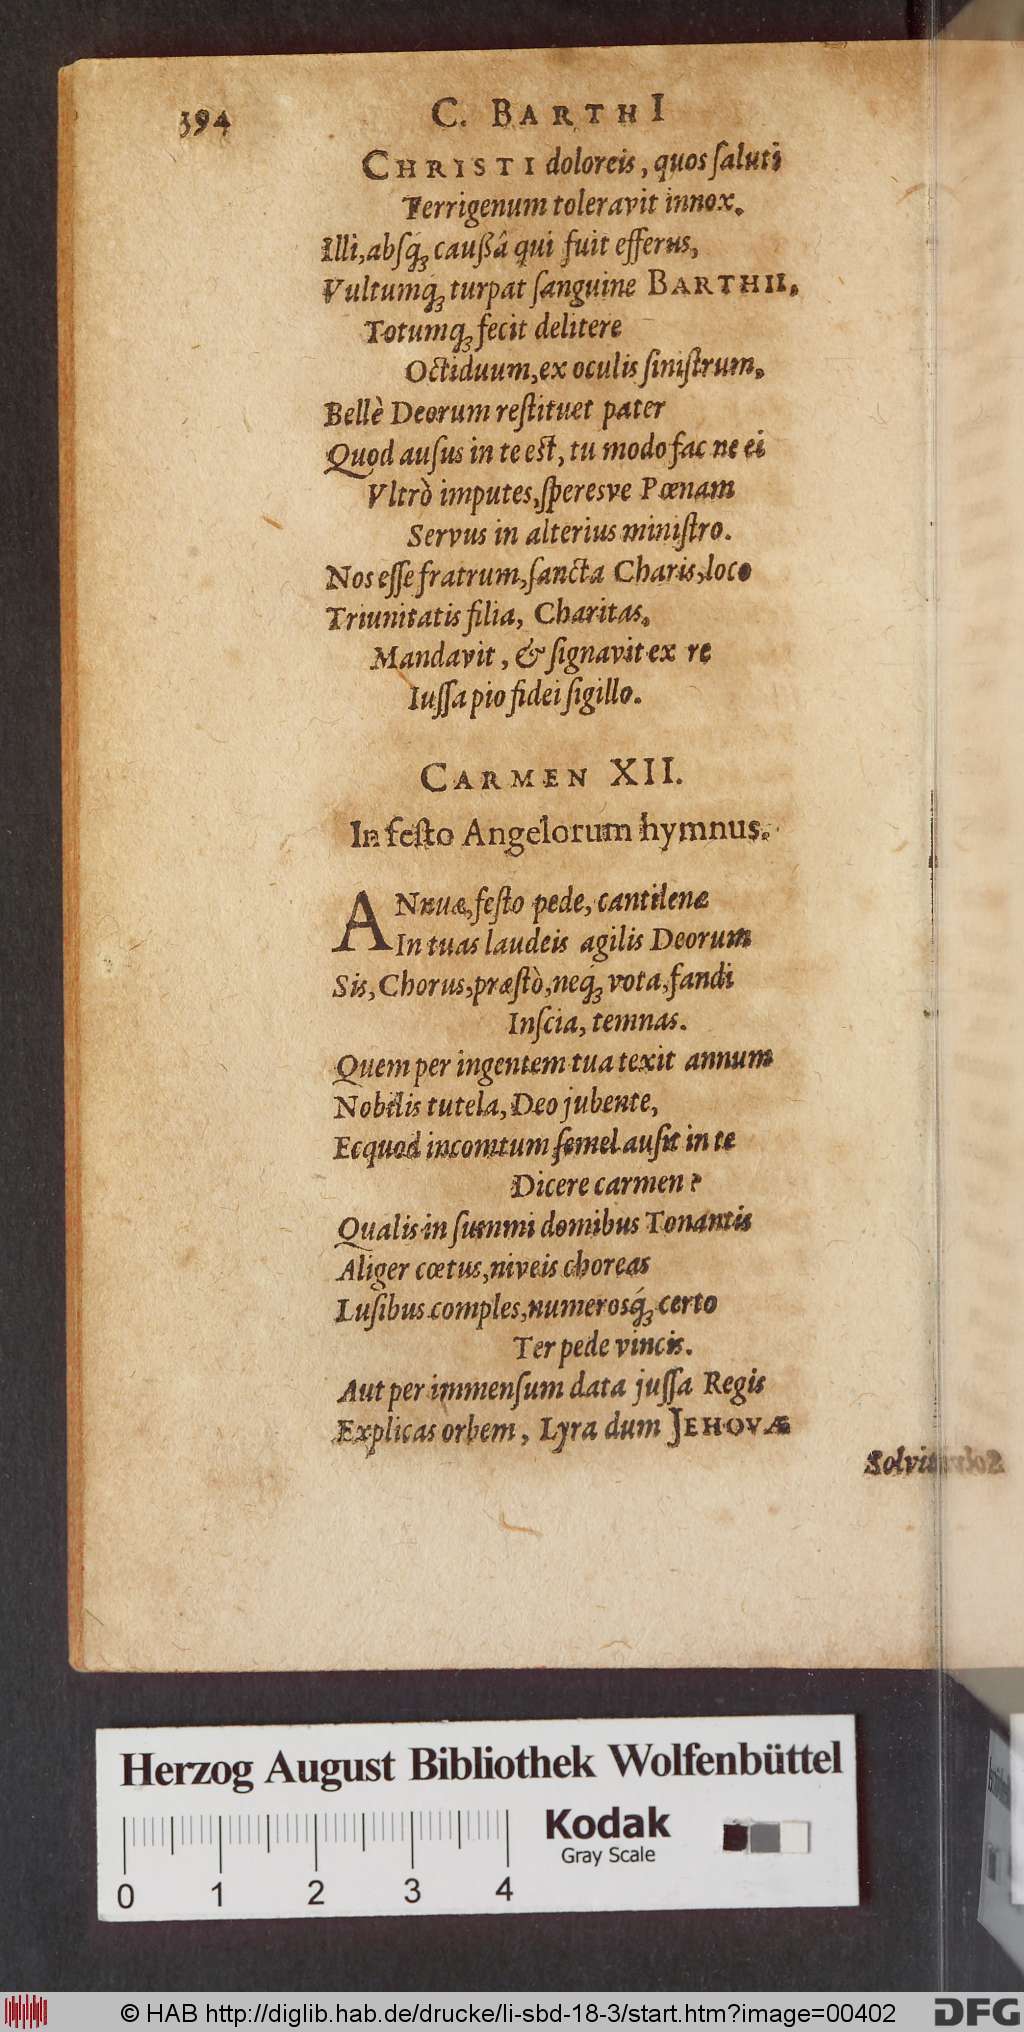 394 C. BARTHI
CHRISTI doloreis, quos ſaluti
Terrigenum toleravit innox.
Illi, abſq́ꝫ cauſſâ qui fuit efferus,
Vultumq́ꝫ turpat ſanguine BARTHII.
Totumqꝫ fecit delitere
Octiduum, ex oculis ſiniſtrum.
Bellè Deorum reſtituet pater
Quod auſus in te eſt, tu modo fac ne ei
Vltrò imputes, ſperesve Pœnam
Servus in alterius miniſtro.
Nos eſſe fratrum, ſancta Charis, loco
Triunitatis filia, Charitas.
Mandavit, & ſignavit ex re
Iuſſa pio fidei ſigillo.
CARMEN XII.
In feſto Angelorum hymnus.
ANnuæ, feſto pede, cantilenæ
In tuas laudeis agilis Deorum
Sis, Chorus, præſtò, neq́ꝫ vota, fandi
Inſcia, temnas.
Quem per ingentem tua texit annum
Nobilis tutela, Deo jubente,
Ecquod incomtum ſemel auſit in te
Dicere carmen?
Qualis in ſummi domibus Tonantis
Aliger cœtus, niveis choreas
Luſibus comples, numerosq́ꝫ certo
Ter pede vincis.
Aut per immenſum data juſſa Regis
Explicas orbem, Lyra dum JEHOVÆ
Solvit
Herzog August Bibliothek Wolfenbüttel
Kodak
Gray Scale
0 1 2 3 4
© HAB http://diglib.hab.de/drucke/li-sbd-18-3/start.htm?image=00402
DFG